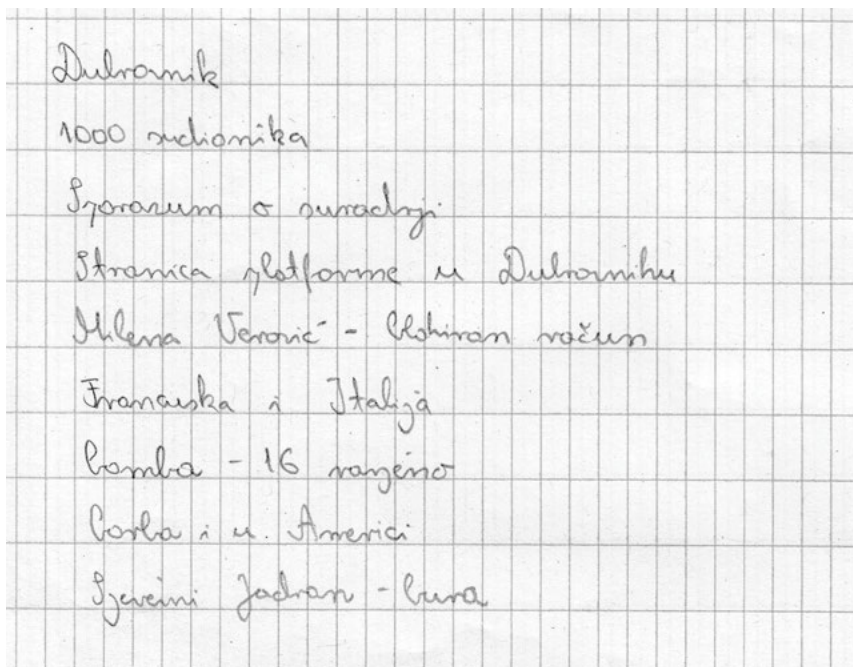 Dubrovnik
1000 sudionika
Sporazum o suradnji
Stranica platforme u Dubrovniku
Milena Verović - blokiran račun
Francuska i Italija
bomba - 16 ranjeno
borba i u. Americi
Sjeverni Jadran - bura